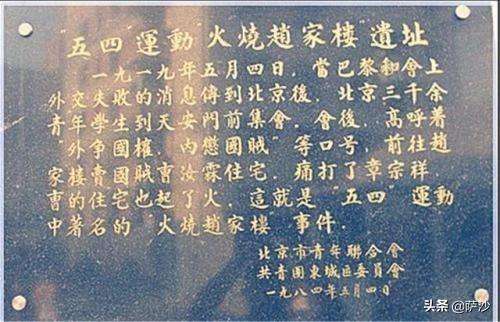 "五四"運動"火燒趙家樓"遺址
一九一九年五月四日，當巴黎和會上
外交失敗的消息傳到北京後，北京三千余
青年學生到天安門前集會。會後，高呼着
"外争國權，内懲國賊"等口号，前往趙
家樓賣國賊曹汝霖住宅，痛打了章宗祥，
曹的住宅也起了火，這就是"五四"運動
中著名的"火燒趙家樓"事件。
北京市青年聯合會
共青團東城區委員會
一九八四年五月四日
头条 @萨沙